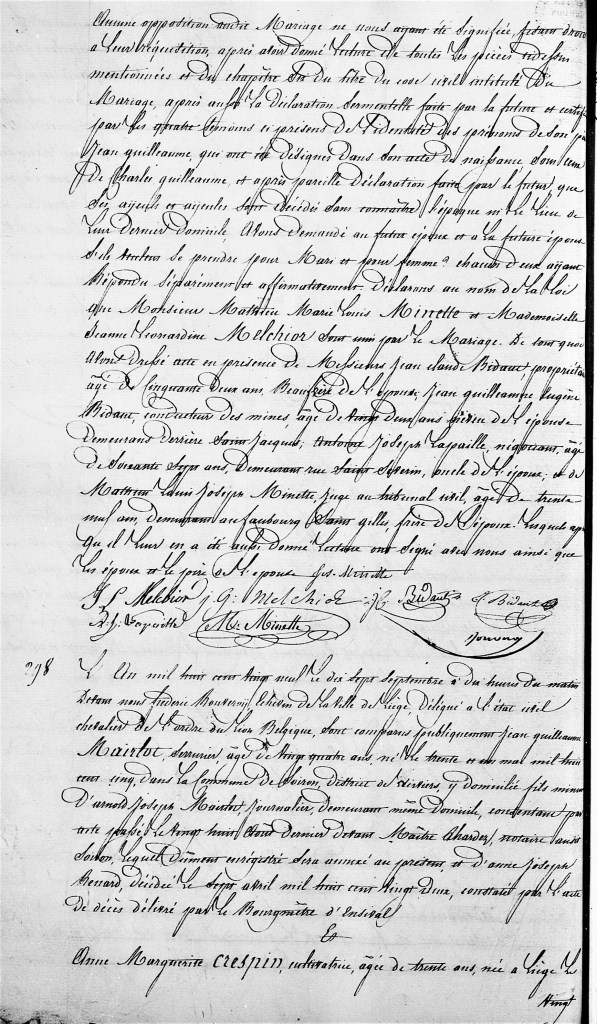 Aucune opposition audit Mariage ne nous ayant été signifiée, fesant droit
a Leur réquisition, après avoir donné Lecture de toutes Les pièces ci dessus
mentionnées et du chapitre du titre du code civil intitulé Du
Mariage, après aussi La Déclaration Sermentelle faite par la future et certifiée
par Les quatre témoins ci présens de l'identité des prénoms de Son père
Jean guillaume, qui ont été désignés Dans Son acte de naissance Sous ceux
De Charles guillaume, et après pareille Déclaration faite par le futur, que
Ses ayeuls et ayeules Sont Décédés Sans connaître l'époque ni Le Lieu de
Leur Dernier Domicile Avons Demandé au futur époux et a La future épouse
S'ils veulent Se prendre pour Mari et pour femme chacun d'eux ayant
Répondu Séparément et affirmativement Déclarons au nom de La Loi
que Monsieur Mathieu Marie Louis Minette et Mademoiselle
Jeanne Léonardine Melchior Sont unis par Le Mariage. De tout quoi
Avons Dressé acte en présence de Messieurs Jean Claude Bidaut, propriétaire
âgé de Cinquante Deux ans, Beaufrère De L'épouse, Jean guillaume Eugène
Bidaut, conducteur des mines, âgé de Vingt Deux ans Neveu de L'épouse
Demeurans Derrière Saint Jacques; Antoine Joseph Laspaille, négociant, âgé
de Soixante Sept ans, Demeurant rue Saint Séverin, oncle de L'époux; et de
Mathieu Louis Joseph Minette Juge au tribunal civil, âgé de trente
neuf ans, demeurant au faubourg Saint gilles, frère de L'époux. Lesquels après
Qu'il Leur en a été aussi Donné Lecture ont Signé avec nous ainsi que
Les époux et Le père de L'épouse
J L Melchior j. G: Melchior Bidaut E. Bidaut
M. Minette
398 L'An mil huit cent vingt neuf Le dix Sept Septembre à dix heures du matin
Devant nous frédéric Rouveroy, échevin de La Ville de Liège, Délégué à L'état civil
chevalier de L'ordre du Lion Belgique, Sont comparus publiquement Jean guillaume
Mairlot, Serrurier, âgé de Vingt quatre ans, né Le trente et un mai mil huit
cent cinq, dans La Commune De Soiron, District de Verviers, y Domicilié fils mineur
D'arnold Joseph Mairlot Journalier, Demeurant même Domicile, consentant par
acte passé Le Vingt huit août Dernier Devant Maître Chardez, notaire audit
Soiron, Lequel Dûment enregistré Sera annexé au présent, et d'anne Joseph
Renard, Décédée Le Sept avril mil huit cent Vingt Deux, constaté par L'acte
De décès délivré par Le Bourgmestre d'Ensival
Et
Anne Marguerite Crespin, cultivatrice, âgée de trente ans, née a Liège Le
Vingt